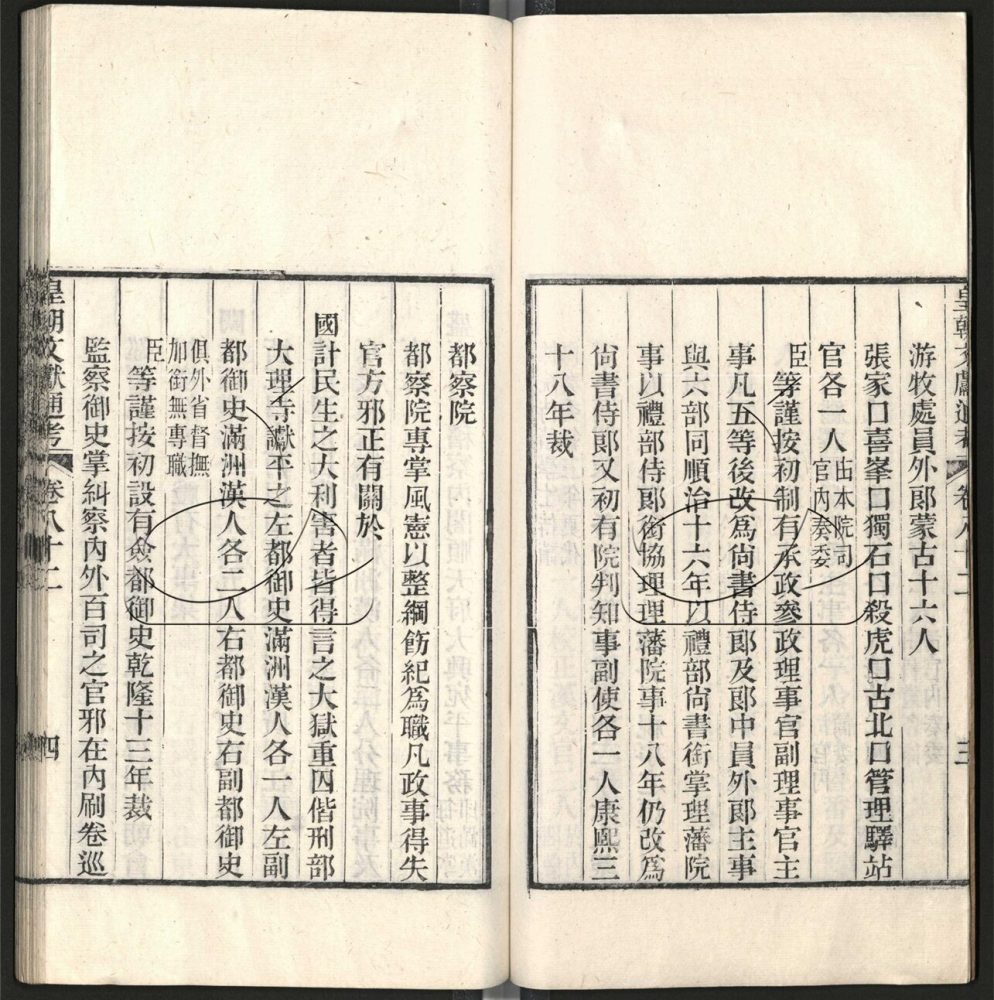 皇朝文獻通考 卷八十二 三
游牧處員外郎蒙古十六人
張家口喜峯口獨石口殺虎口古北口管理驛站
官各一人由本院司官內奏委
臣等謹按初制有承政叅政理事官副理事官主
事凡五等後改爲尙書侍郎及郎中員外郎主事
與六部同順治十六年以禮部尙書銜掌理藩院
事以禮部侍郎銜協理理藩院事十八年仍改爲
尙書侍郎又初有院判知事副使各一人康熙三
十八年裁
都察院
都察院專掌風憲以整綱飭紀爲職凡政事得失
官方邪正有關於
國計民生之大利害者皆得言之大獄重囚偕刑部
大理寺讞平之左都御史滿洲漢人各一人左副
都御史滿洲漢人各二人右都御史右副都御史
俱外省督撫加銜無專職
臣等謹按初設有僉都御史乾隆十三年裁
監察御史掌糾察內外百司之官邪在內刷卷巡
皇朝文獻通考 卷八十二 四